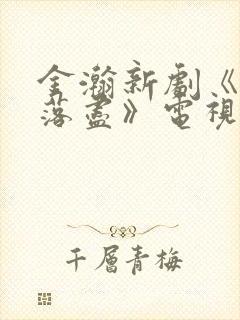 金瀚新劇《
落盡》電視
千層青梅